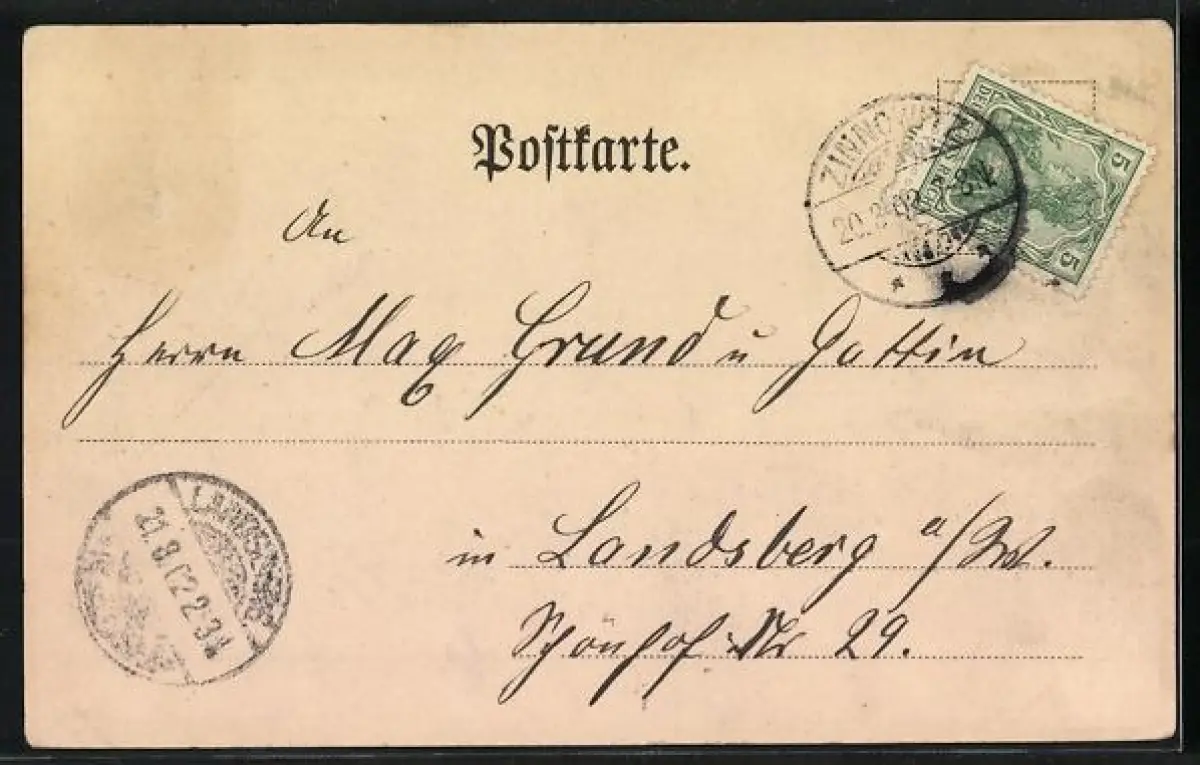 Postkarte.
An
Herrn Max Grund u Gattin
in Landsberg a/W.
Schönhof Str 29.
ZINNOWITZ
20.8.02
5
5
LANDSBERG
21.8.02 2-3N